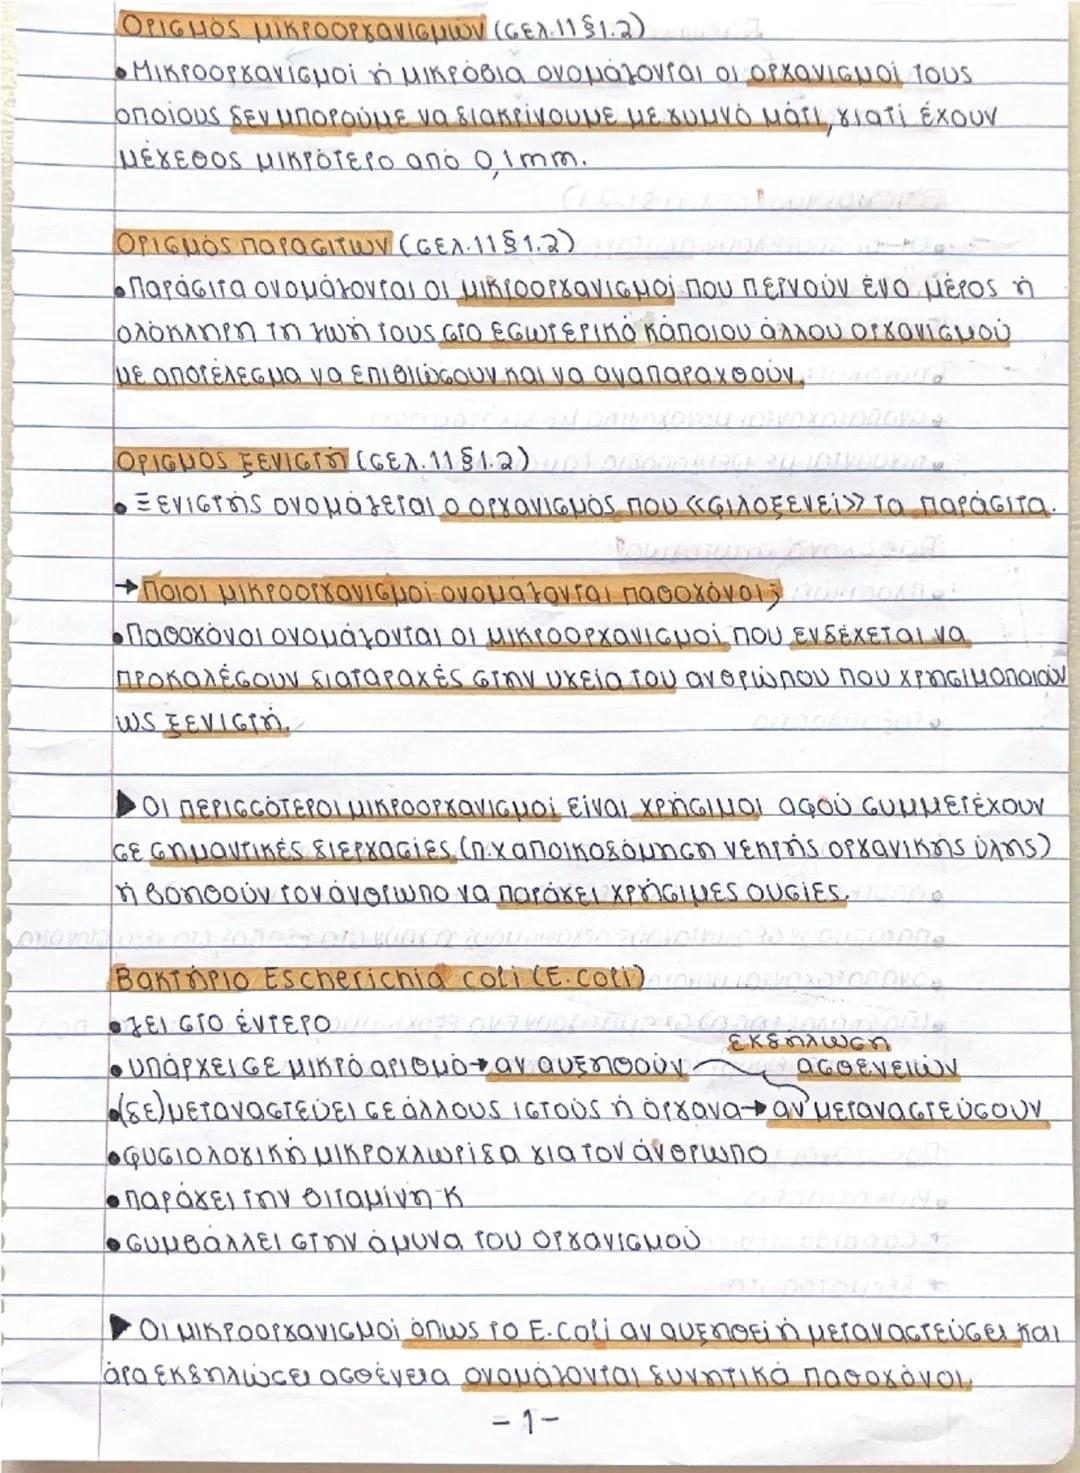 Ορισμός μικροοργανισμών (σελ.11 §1.2)
• Μικροοργανισμοί ή μικρόβια ονομάζονται οι οργανισμοί τους
οποίους δεν μπορούμε να διακρίνουμε με γυμνό μάτι, γιατί έχουν
μέγεθος μικρότερο από 0,1mm.
Ορισμός παρασίτων (σελ.11 §1.2)
• Παράσιτα ονομάζονται οι μικροοργανισμοί που περνούν ένα μέρος ή
ολόκληρη τη ζωή τους στο εσωτερικό κάποιου άλλου οργανισμού
με αποτέλεσμα να επιβιώσουν και να αναπαραχθούν.
Ορισμός ξενιστή (σελ.11 §1.2)
• Ξενιστής ονομάζεται ο οργανισμός που «φιλοξενεί» τα παράσιτα.
→ Ποιοι μικροοργανισμοί ονομάζονται παθογόνοι;
• Παθογόνοι ονομάζονται οι μικροοργανισμοί που ενδέχεται να
προκαλέσουν διαταραχές στην υγεία του ανθρώπου που χρησιμοποιούν
ως ξενιστή.
▶ Οι περισσότεροι μικροοργανισμοί είναι χρήσιμοι αφού συμμετέχουν
σε σημαντικές διεργασίες (π.χ αποικοδόμηση νεκρής οργανικής ύλης)
ή βοηθούν τον άνθρωπο να παράγει χρήσιμες ουσίες.
Βακτήριο Escherichia coli (E.coli)
• ζει στο έντερο
εκδήλωση
• υπάρχει σε μικρό αριθμό → αν αυξηθούν ασθενειών
• (δε) μεταναστεύει σε άλλους ιστούς ή όργανα → αν μεταναστεύσουν
• φυσιολογική μικροχλωρίδα για τον άνθρωπο
• παράγει την βιταμίνη Κ
• συμβάλλει στην άμυνα του οργανισμού
▶ Οι μικροοργανισμοί όπως το E.coli αν αυξηθεί ή μεταναστεύσει και
άρα εκδηλώσει ασθένεια ονομάζονται δυνητικά παθογόνοι.
- 1 -